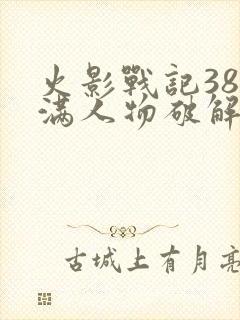 火影戰記38
满人物破解
古城上有月亮